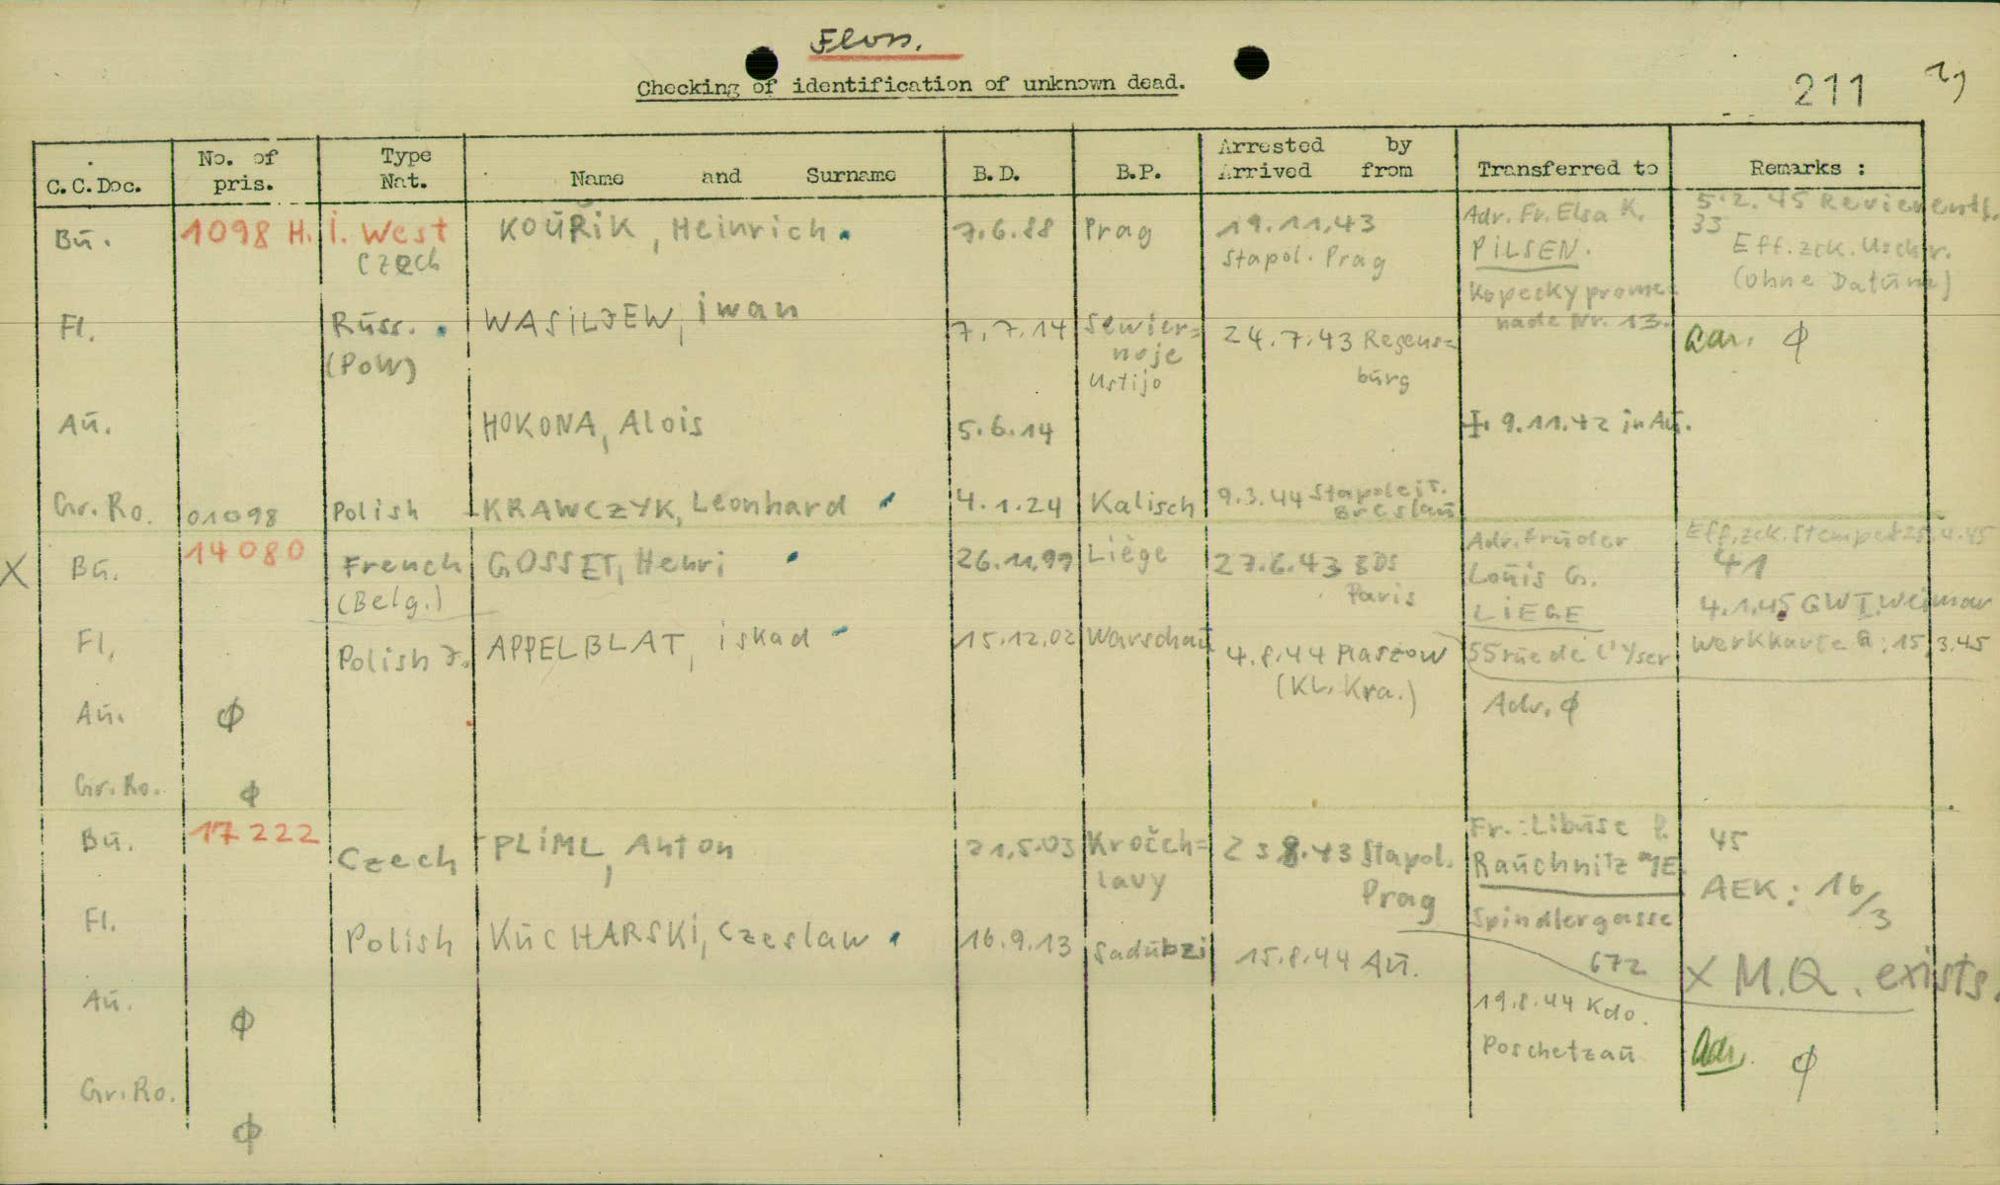 Flon.
Checking of identification of unknown dead.
211
C.C.Doc. No. of pris. Type Nat. Name and Surname B.D. B.P. Arrested by Arrived from Transferred to Remarks :
Bū. 1098 H. I. West Czech KOŬŘIK, Heinrich. 7.6.88 Prag 19.11.43 Stapol. Prag Adr. Fr. Elsa K. PILSEN. Kopecky promenade Nr. 13. 5.2.45 Revierentl. 33 Eff.zck. Uschr. (ohne Datūm)
Fl. Rūss. (PoW) WASILJEW, iwan 7.7.14 Sewier= noje Ustijo 24.7.43 Regens= būrg Adr. ϕ
Aū. HOKONA, Alois 5.6.14 + 9.11.42 in Aū.
Gr.Ro. 01098 Polish KRAWCZYK, Leonhard 4.1.24 Kalisch 9.3.44 Stapoleit. Breslaū
X Bū. 14080 French (Belg.) GOSSET, Henri 26.11.99 Liège 27.6.43 BDS Paris Adr. Brūder Loūis G. LIEGE 55 rūe de l'Yser Eff.zck. Stempel 25.4.45 41 4.1.45 GW I Weimar Werkkarte a: 15.3.45
Fl. Polish J. APPELBLAT, iskad 15.12.02 Warschaū 4.8.44 Plaszow (KL. Kra.) Adr. ϕ
Aū. ϕ
Gr.Ro. ϕ
Bū. 17222 Czech PLIML, Anton 21.5.03 Kročeh= lavy 23.8.43 Stapol. Prag Fr.: Libūse P. Raūchnitz a/E. Spindlergasse 672 45 AEK: 16/3
X M.Q. exists.
Fl. Polish KŪCHARSKI, Czeslaw 16.9.13 Sadūbzi 15.8.44 Aū. 19.8.44 Kdo. Poschetzaū Adr. ϕ
Aū. ϕ
Gr.Ro. ϕ